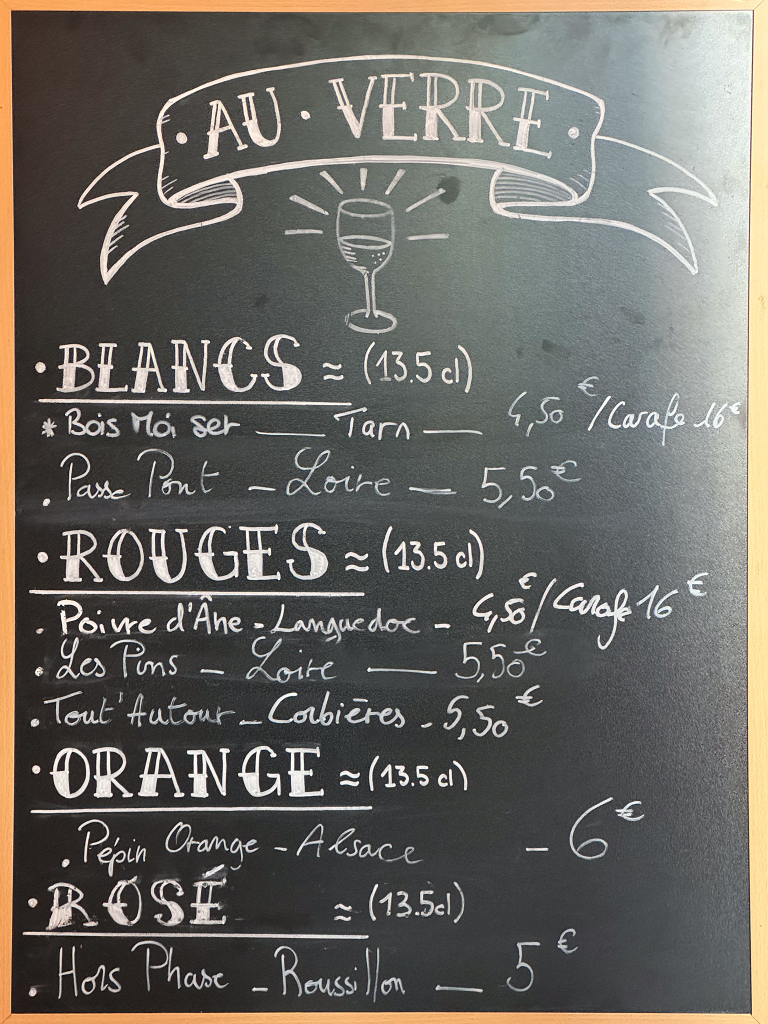 • AU • VERRE •
• BLANCS ≈ (13.5 cl)
* Bois Moi Sec — Tarn — 4,50€ / Carafe 16€
. Passe Pont – Loire — 5,50€
• ROUGES ≈ (13.5 cl)
. Poivre d'Âne - Languedoc - 4,50€ / Carafe 16€
. Les Pins – Loire — 5,50€
. Tout'Autour – Corbières - 5,50€
• ORANGE ≈ (13.5 cl)
. Pépin Orange - Alsace – 6€
• ROSÉ ≈ (13.5cl)
. Hors Phase – Roussillon — 5€